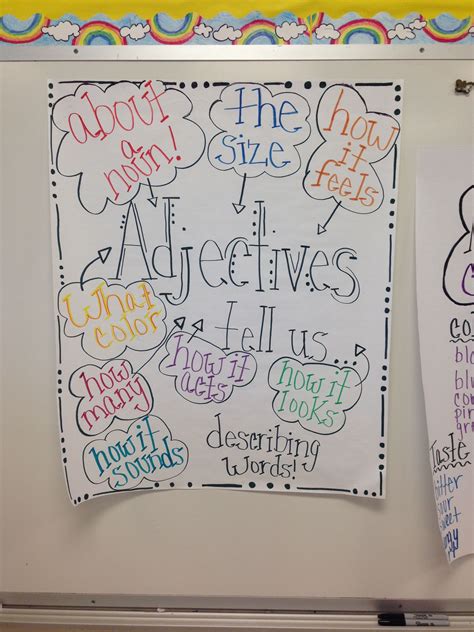 about
a
noun!
the
size
how
it
feels
Adjectives
tell us...
What
color
how it
acts
how it
looks
how
many
how it
sounds
describing
words!
Taste
bitter
sour
sweet